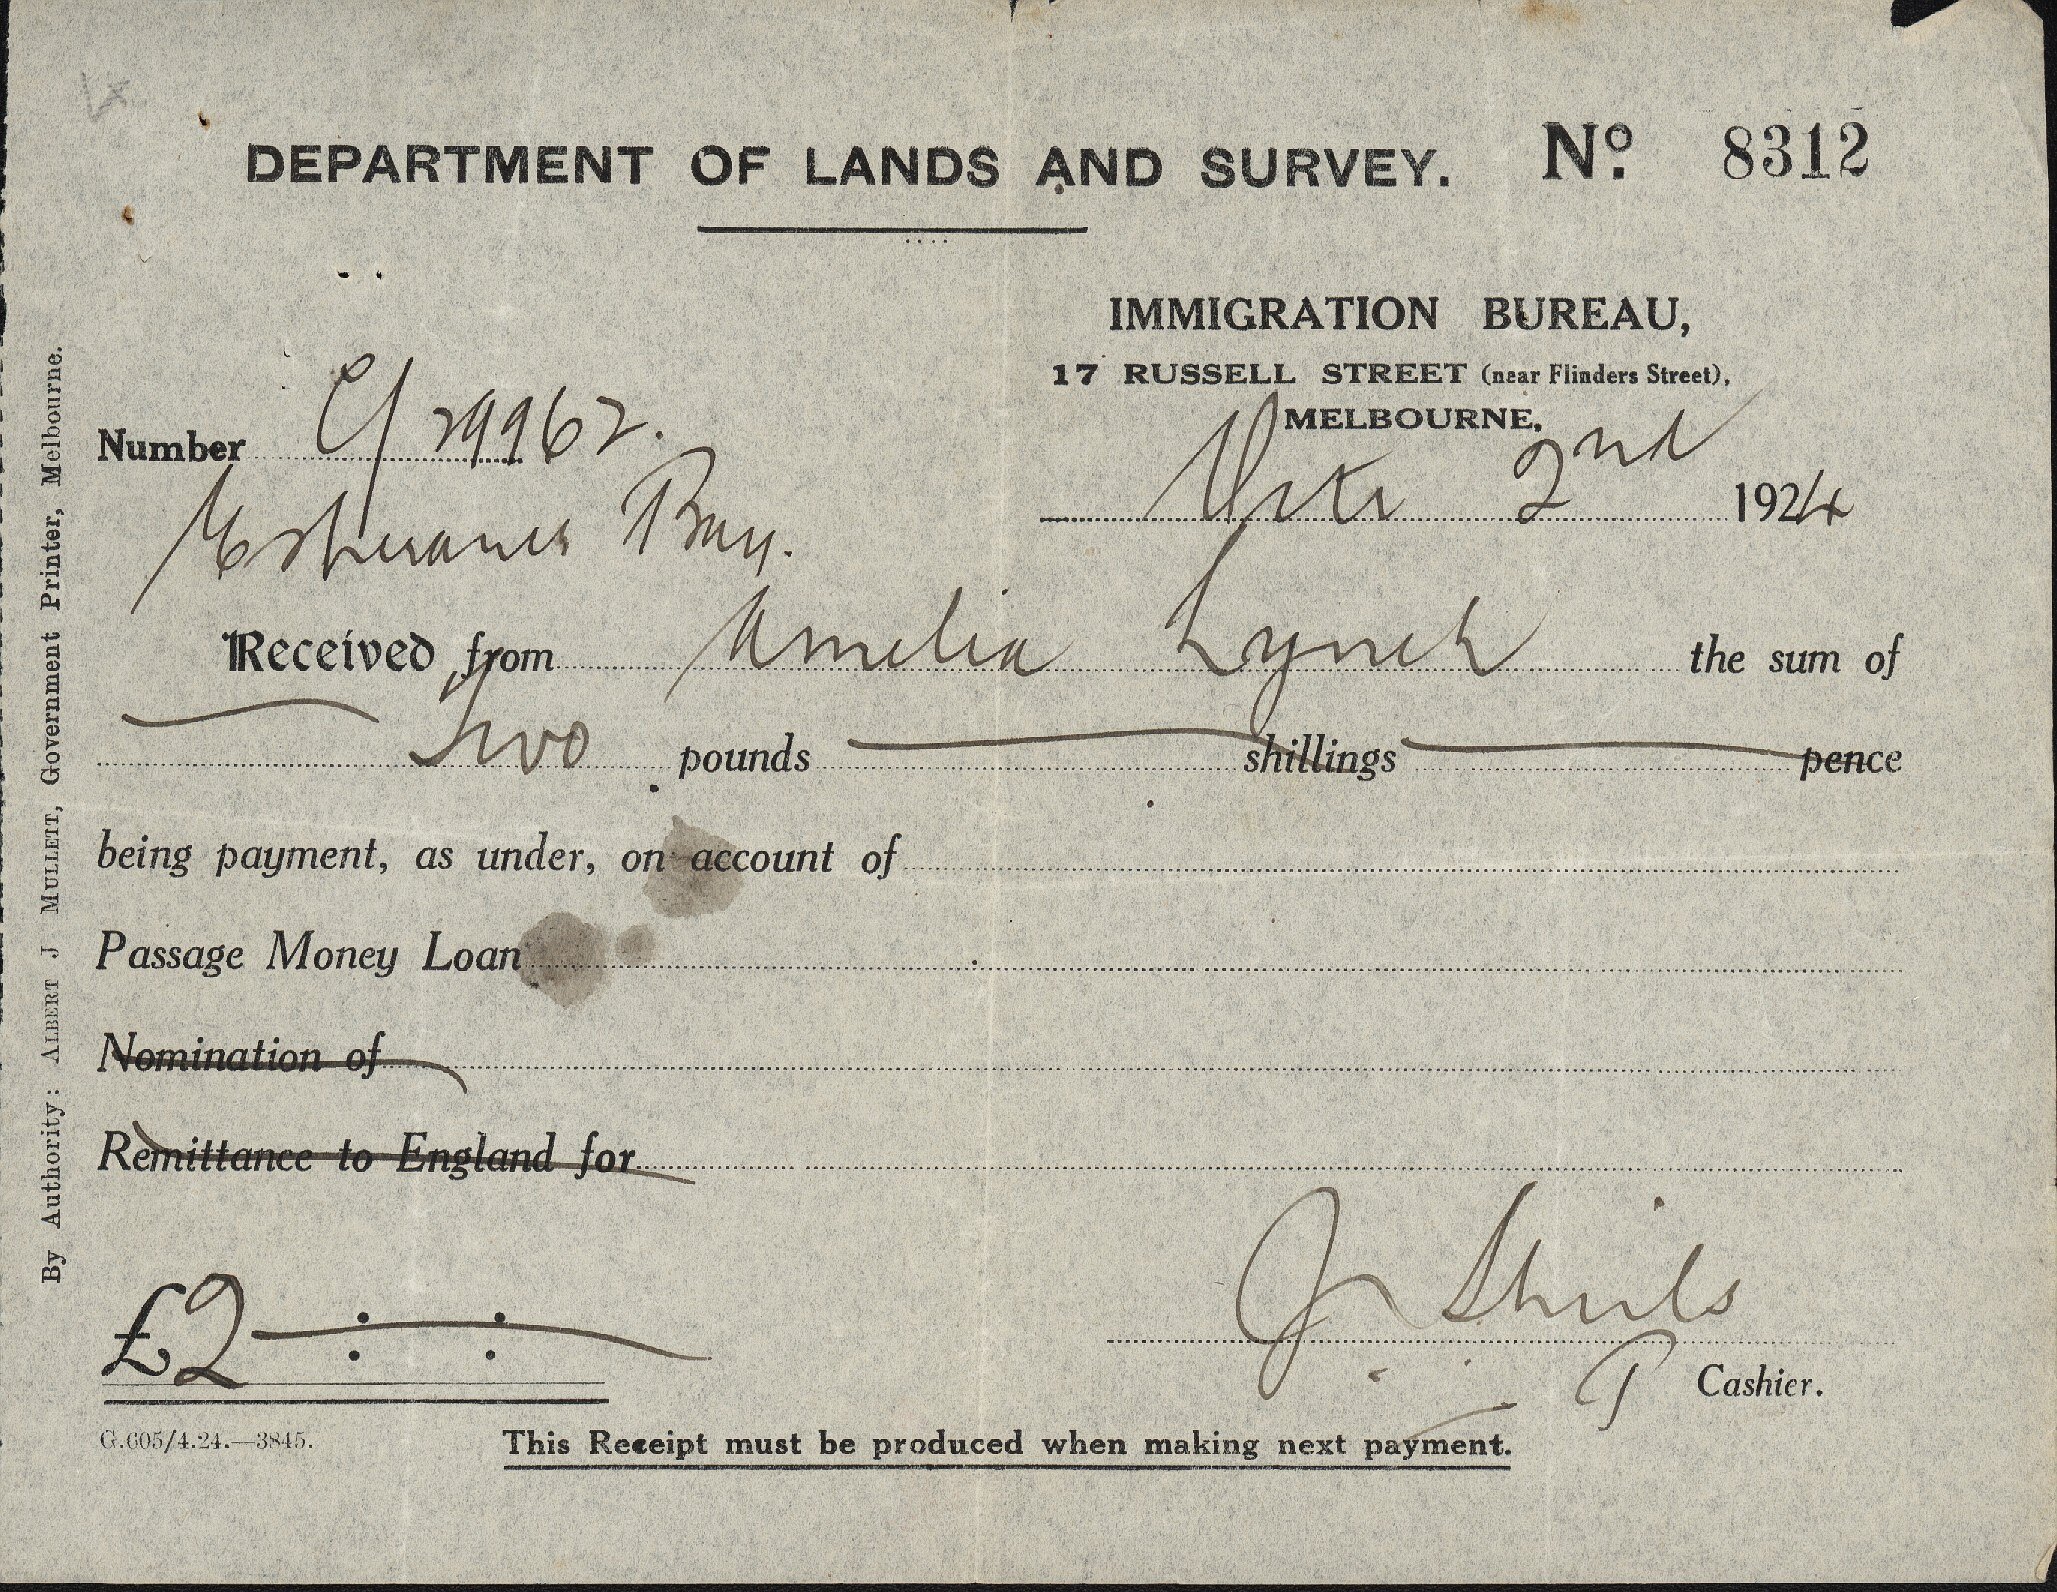 DEPARTMENT OF LANDS AND SURVEY. No. 8312
IMMIGRATION BUREAU,
17 RUSSELL STREET (near Flinders Street),
MELBOURNE,
Number C/29962.
Octr 2nd 1924
Esperance Bay.
Received from Amelia Lynch the sum of
Two pounds shillings pence
being payment, as under, on account of
Passage Money Loan
Nomination of
Remittance to England for
£2 : :
J. Shiels
Cashier.
G.605/4.24.—3845.
This Receipt must be produced when making next payment.
By Authority: ALBERT J MULLETT, Government Printer, Melbourne.